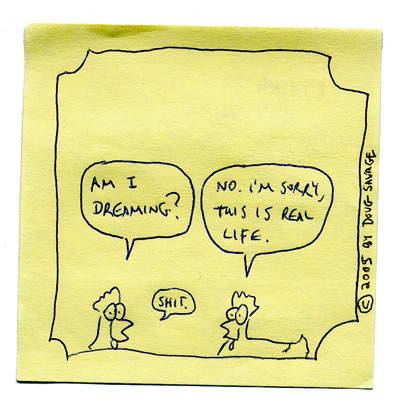 AM I
DREAMING?
NO. I'M SORRY,
THIS IS REAL
LIFE.
SHIT.
© 2005 BY DOUG SAVAGE